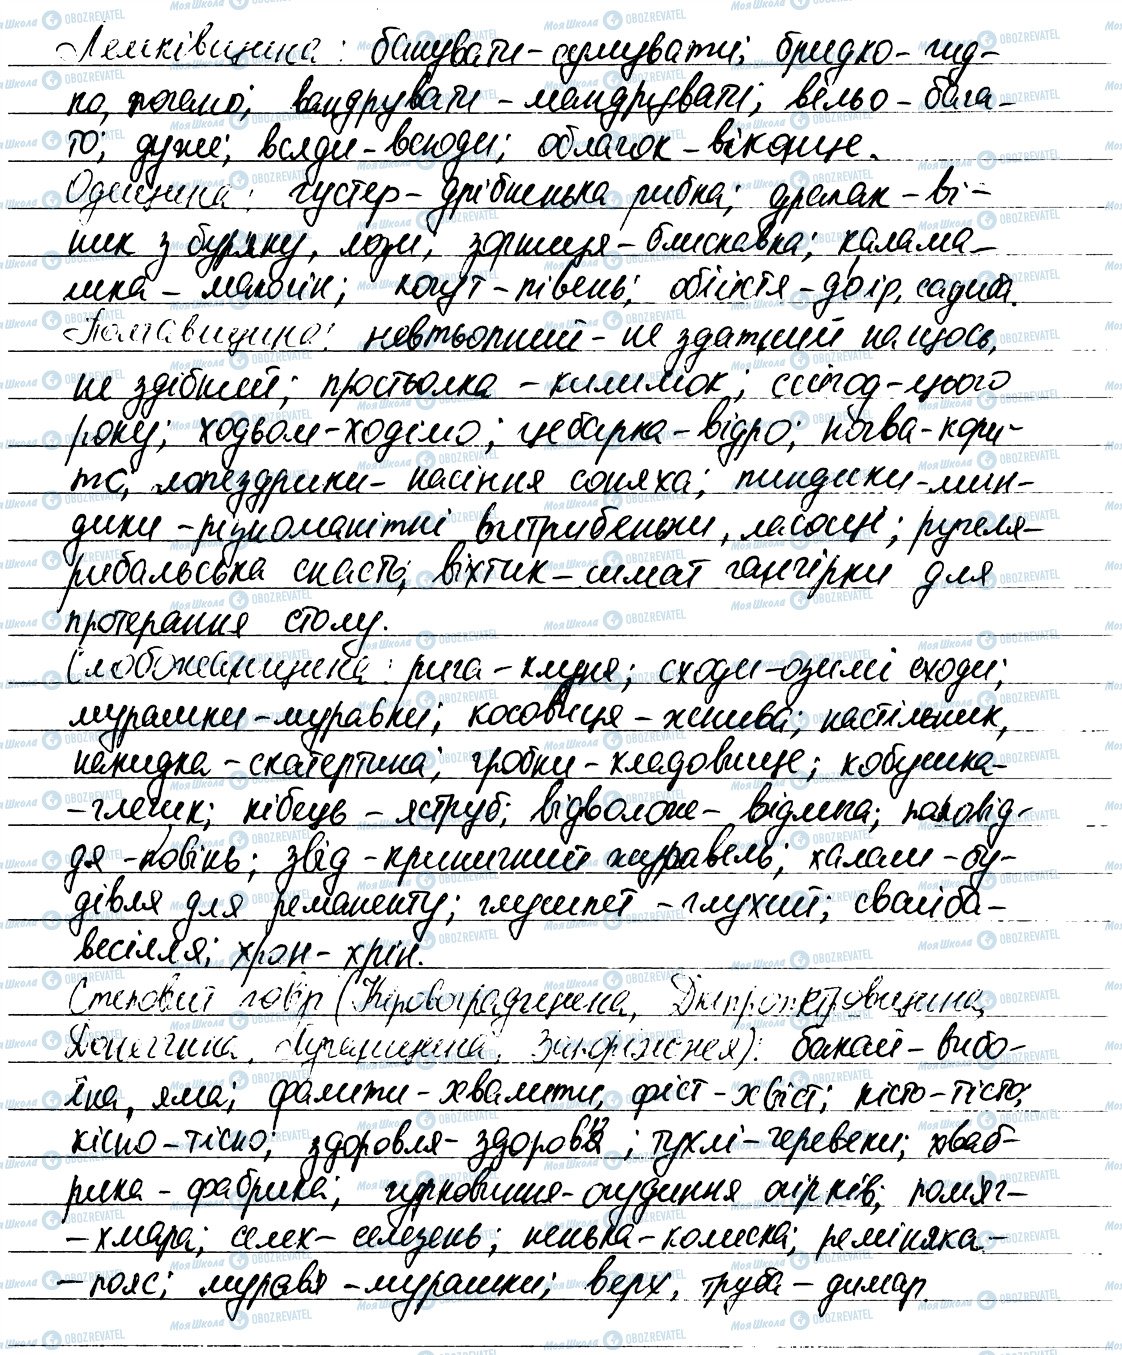 Лемківщина: банувати - сумувати; бридко - гид-
ко, погано; вандрувати - мандрувати; вельо - бага-
то; дуже; всяди - всюди; облачок - віконце.
Одещина: густер - дрібненька рибка; драпак - ві-
ник з бур'яну, лози; зірниця - блискавка; калама-
шка - мокрін; когут - півень; обійстя - двір, садиба.
Полтавщина: невтьопний - не здатний на щось,
не здібний; простьолка - килимок; сейгод - цього
року; ходьом - ходімо; цебарка - відро; ночва - кори-
то; лопездрики - насіння соняха; пиндики-мин-
дики - різноманітні витребеньки, ласощі; ручеля -
рибальська снасть; віхтик - шмат ганчірки для
протерання столу.
Слобожанщина: рига - клуня; сходи - озимі сходи;
мурашки - муравки; косовиця - жнива; настільник,
накидка - скатертина; гробки - кладовище; кобушка -
- глечик; кібець - яструб; відволож - відлига; паповід-
дя - повінь; звід - криничний журавель; халаш - бу-
дівля для реманенту; глушпет - глухий; свайба -
весілля; хрон - хрін.
Степовий говір (Кіровоградщина, Дніпропетровщина,
Донеччина, Луганщина, Запоріжжя): бакай - вибо-
їна, яма; фалити - хвалити, фіст - хвіст; кісто - тісто;
кісно - тісно; здоровля - здоров'я; тухлі - черевики; хваб-
рика - фабрика; гурковиння - огудиння огірків; поміяг -
- хмара; селех - селезень; ненька - колиска; реміняка -
- пояс; муравя - мурашки; верх, труба - димар.
МояШкола OBOZREVATEL